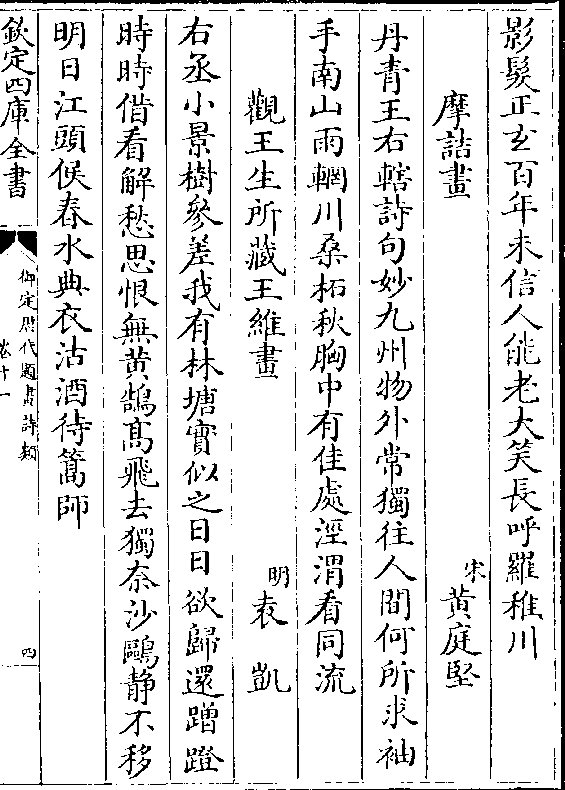 影髮正玄百年未信人能老大笑長呼羅稚川
摩詰畫
宋黄庭堅
丹青王右轄詩句妙九州物外常獨往人間何所求袖
手南山雨輞川桑柘秋胸中有佳處涇渭看同流
觀王生所藏王維畫
明袁凱
右丞小景樹參差我有林塘實似之日日欲歸還蹭蹬
時時借看解愁思恨無黄鵠髙飛去獨奈沙鷗静不移
明日江頭候春水典衣沽酒待篙師
欽定四庫全書
御定歷代題畫詩類
卷十一
四